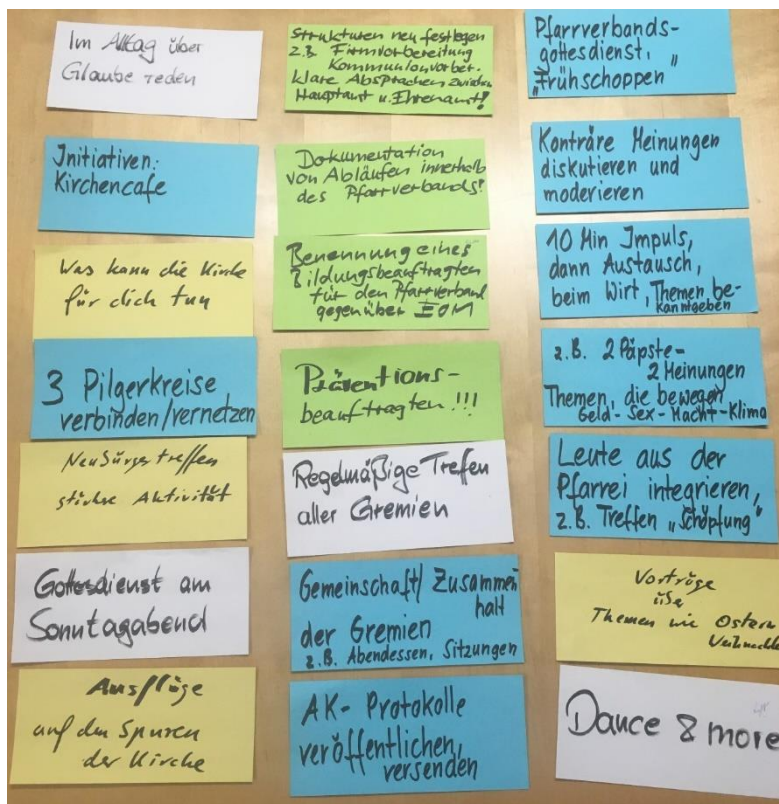 Im Alltag über
Glaube reden
Initiativen:
Kirchencafe
Was kann die Kirche
für dich tun
3 Pilgerkreise
verbinden/vernetzen
Neubürgertreffen
stärkere Aktivität
Gottesdienst am
Sonntagabend
Ausflüge
auf den Spuren
der Kirche
Strukturen neu festlegen
z.B. Firmvorbereitung
Kommunionvorber.
klare Absprachen zwischen
Hauptamt u. Ehrenamt!
Dokumentation
von Abläufen innerhalb
des Pfarrverbands!
Benennung eines
Bildungsbeauftragten
für den Pfarrverband
gegenüber EOM
Präventions-
beauftragten!!!
Regelmäßige Treffen
aller Gremien
Gemeinschaft/Zusammen
halt
der Gremien
z.B. Abendessen, Sitzungen
AK-Protokolle
veröffentlichen,
versenden
Pfarrverbands-
gottesdienst,
"Frühschoppen"
Konträre Meinungen
diskutieren und
moderieren
10 Min Impuls,
dann Austausch,
beim Wirt, Themen be-
kanntgeben
z.B. 2 Päpste-
2 Meinungen
Themen, die bewegen
Geld-Sex-Macht-Klima
Leute aus der
Pfarrei integrieren,
z.B. Treffen "Schöpfung"
Vorträge
über
Themen wie Ostern
Weihnachten
Dance & more